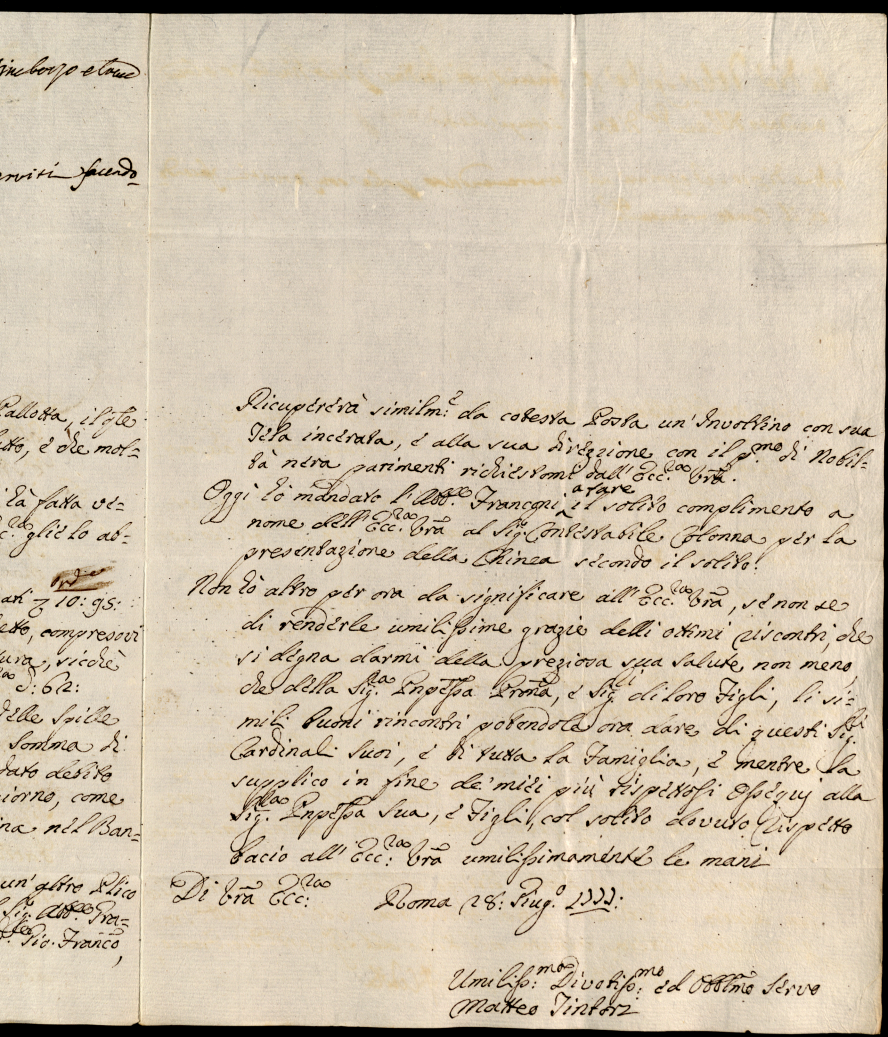 fincborzo e tomo
erviti facendo
Pallotta, il qle
tto, è che mol=
i hà fatta ve=
glielo ab=
10: 95:
etto, compresovi
tura, sicchè
d: 62:
delle Spille
Somma di
dato debito
giorno, come
ina nel Ban=
un'altro Plico
Sig. Abb.e Fra=
Gio. Franc.o,
Ricupererà similm.e da cotesta Posta un'Involtino con sua
Tela incerata, e alla sua direzzione con il p.mo di Nobil=
tà nera parimenti richiestomi dall'Ecc.za Vrã.
Oggi hò mandato l'Abb.e Franconi a fare il solito complimento a
nome dell'Ecc.za Vrã al Sig.r Contestabile Colonna per la
presentazione della Chinea secondo il solito.
Non hò altro per ora da significare all'Ecc.za Vrã, se non se
di renderle umilissime grazie delli ottimi riscontri, che
si degna darmi della preziosa sua salute, non meno,
che della Sig.ra Pnpessa Pnña, e Sig.ri di loro Figli, li si=
mili buoni rincontri potendole ora dare di questi Sig.ri
Cardinali suoi, e di tutta la Famiglia, e mentre la
supplico in fine de' miei più rispettosi Ossequj alla
Sig.ra Pnpessa sua, e Figli, col solito dovuto rispetto
bacio all'Ecc.za Vrã umilissimamente le mani
Di Vrã Ecc.za Roma 28: Giug.o 1777:
Umiliss.mo Divotiss.mo ed Obblmo Servo
Matteo Tintorz